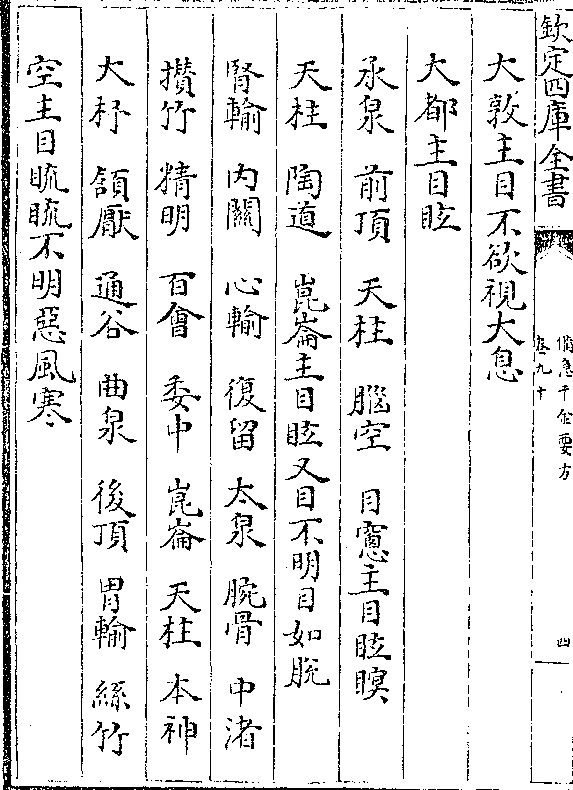 欽定四庫全書
備急千金要方
卷九十
四
大敦主目不欲視大息
大都主目眩
承泉 前頂 天柱 腦空 目窻主目眩瞑
天柱 陶道 崑崙主目眩又目不明目如脫
腎輸 内關 心輸 復留 太泉 腕骨 中渚
攅竹 精明 百㑹 委中 崑崙 天柱 本神
大杼 頷厭 通谷 曲泉 後頂 胃輸 絲竹
空主目䀮䀮不明惡風寒